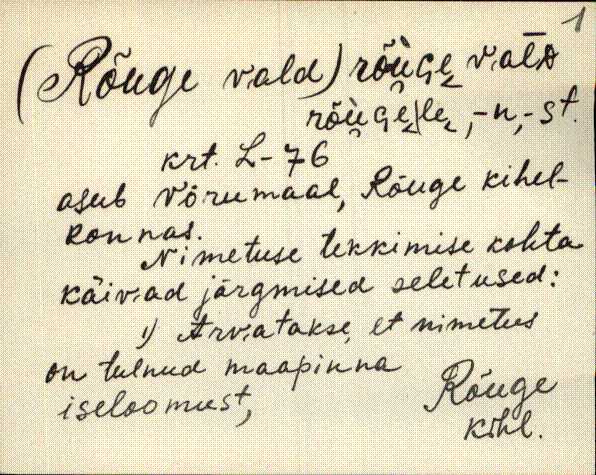 1
(Rõuge vald) rõu̯ɢe valᴅ
rõu̯ɢe|le, -n, -st.
krt. L-76
asub Võrumaal, Rõuge kihel-
konnas.
Nimetuse tekkimise kohta
käivad järgmised seletused:
1) Arvatakse, et nimetus
on tulnud maapinna
iseloomust,
Rõuge
kihl.